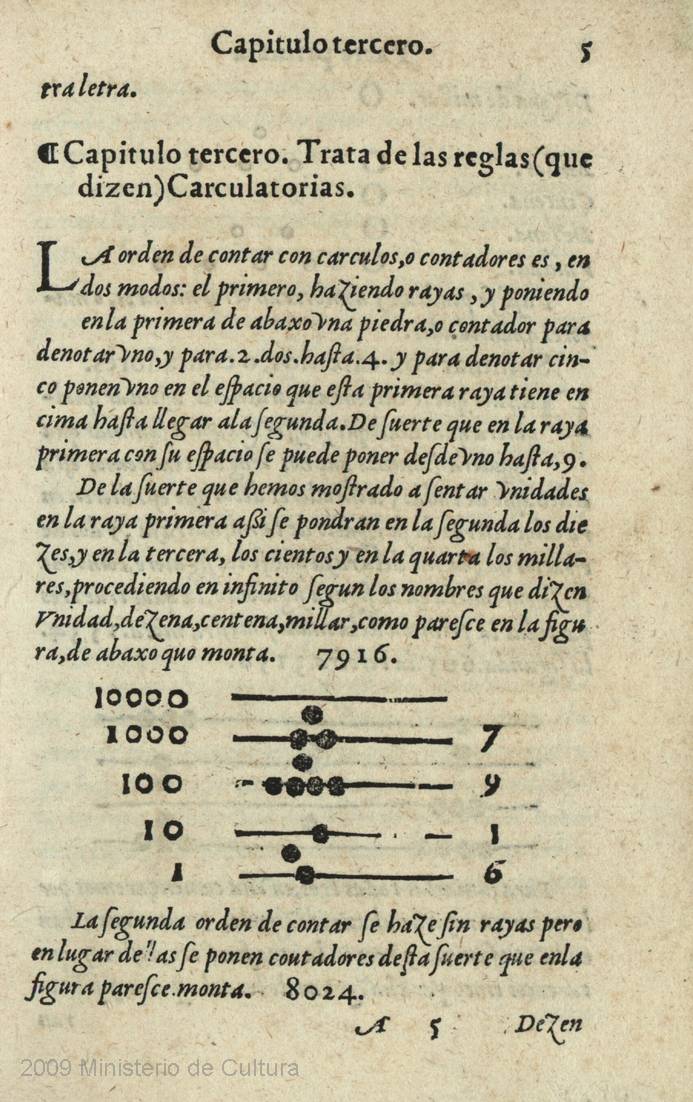 Capitulo tercero. 5
tra letra.
¶Capitulo tercero. Trata de las reglas(que
dizen)Carculatorias.
LA orden de contar con carculos,o contadores es, en
dos modos: el primero, haziendo rayas, y poniendo
en la primera de abaxo vna piedra,o contador para
denotar vno,y para.2.dos.hasta.4. y para denotar cin-
co ponen vno en el espacio que esta primera raya tiene en
cima hasta llegar ala segunda.De suerte que en la raya
primera con su espacio se puede poner desde vno hasta,9.
De la suerte que hemos mostrado a sentar vnidades
en la raya primera assi se pondran en la segunda los die
zes,y en la tercera, los cientos y en la quarta los milla-
res,procediendo en infinito segun los nombres que dizen
Vnidad,dezena,centena,millar,como paresce en la figu
ra,de abaxo quo monta. 7916.
10000
1000 7
100 9
10 1
1 6
La segunda orden de contar se haze sin rayas pero
en lugar dellas se ponen coutadores desta suerte que enla
figura paresce.monta. 8024.
A 5 Dezen
2009 Ministerio de Cultura